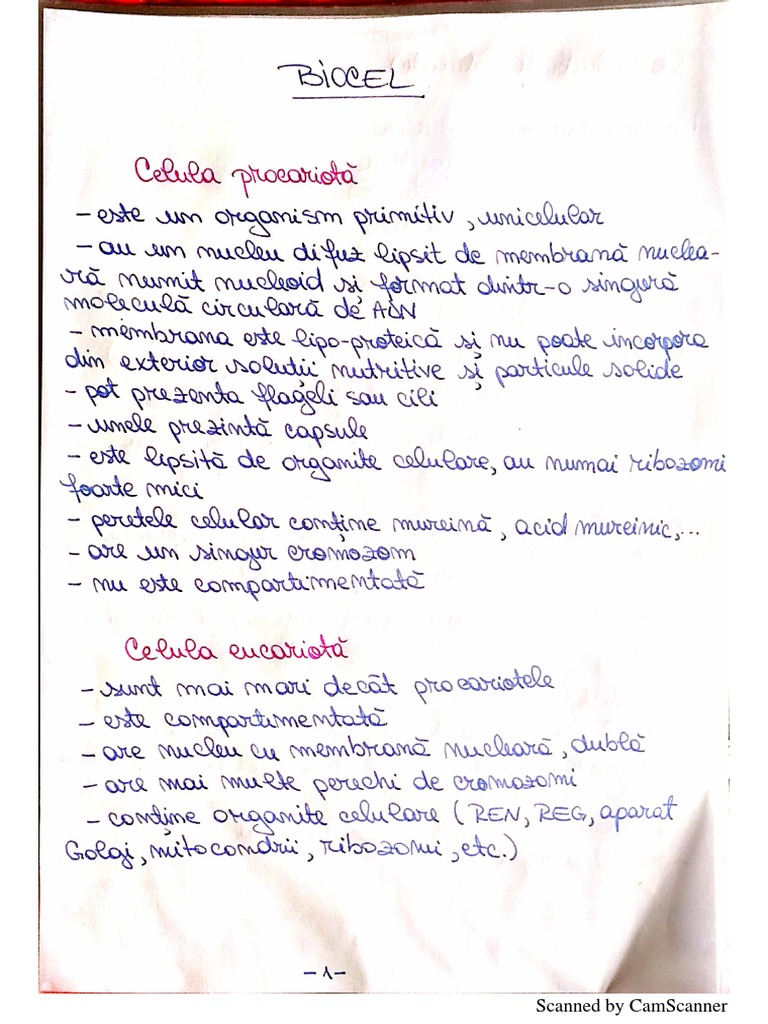 BIOCEL
Celula procariotă
- este un organism primitiv, unicelular
- au un nucleu difuz lipsit de membrană nuclea-
ră numit nucleoid și format dintr-o singură
moleculă circulară de ADN
- membrana este lipo-proteică și nu poate incorpora
din exterior soluții nutritive și particule solide
- pot prezenta flageli sau cili
- unele prezintă capsule
- este lipsită de organite celulare, au numai ribozomi
foarte mici
- peretele celular conține mureină, acid mureinic,...
- are un singur cromozom
- nu este compartimentată
Celula eucariotă
- sunt mai mari decât procariotele
- este compartimentată
- are nucleu cu membrană nucleară, dublă
- are mai multe perechi de cromozomi
- conține organite celulare (REN, REG, aparat
Golgi, mitocondrii, ribozomi, etc.)
-1-
Scanned by CamScanner